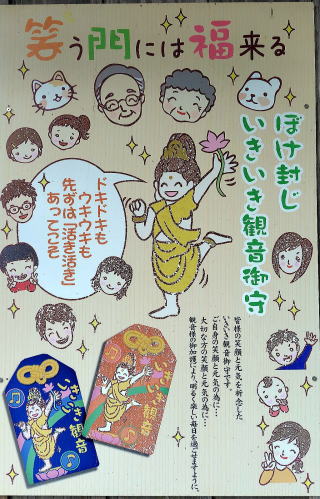 笑う門には福来る
ぼけ封じ
いきいき観音御守
ドキドキも
ウキウキも
先ずは「活き活き」
あってこそ
皆様の笑顔と元気を祈念した
いきいき観音御守です。
ご自身の笑顔と元気の為に…
大切な方の笑顔と元気の為に…
観音様の御加護により、明るく楽しい毎日を過ごせますように。
いきいき観音
いきいき観音